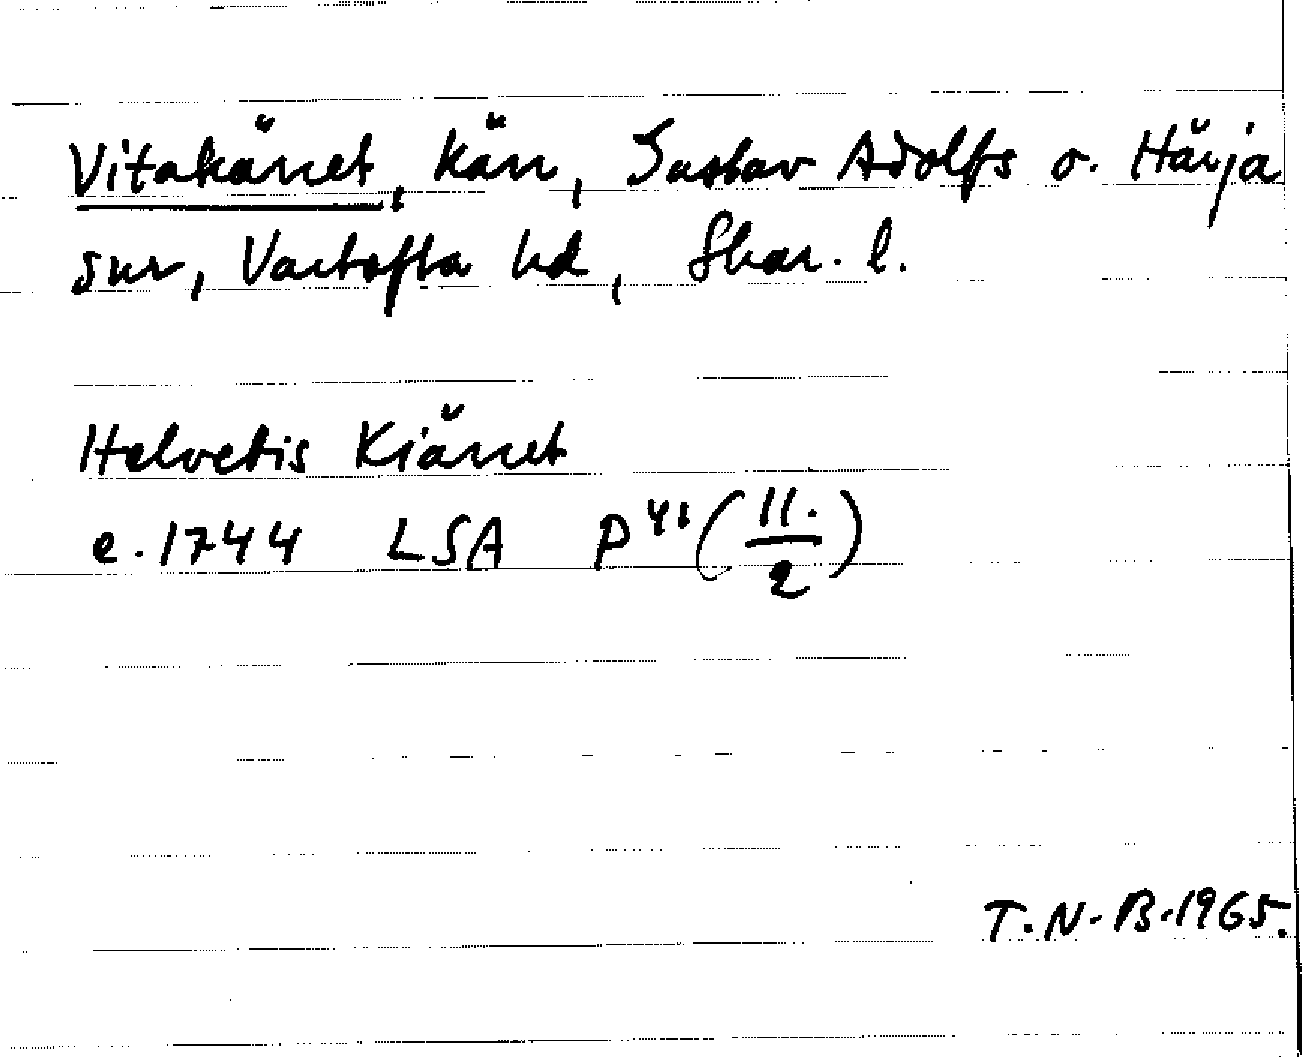 Vitakärret, kärr, Gustav Adolfs o. Härja
snr, Vartofta hd, Skar. l.
Helvetis Kiärret
e. 1744 LSA P⁴¹ (11./2)
T.N.B. 1965.